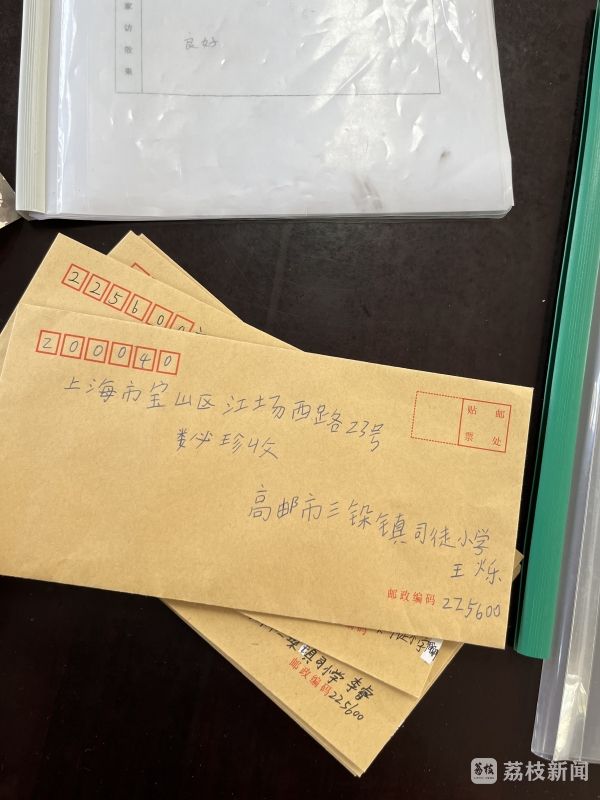 家访效果
良好
225600
200040
上海市宝山区江场西路23号
娄必珍收
贴邮
票处
高邮市三垛镇司徒小学
王烁
邮政编码 225600
垛镇司小学 李睿
邮政编码 225600
荔枝
荔枝新闻